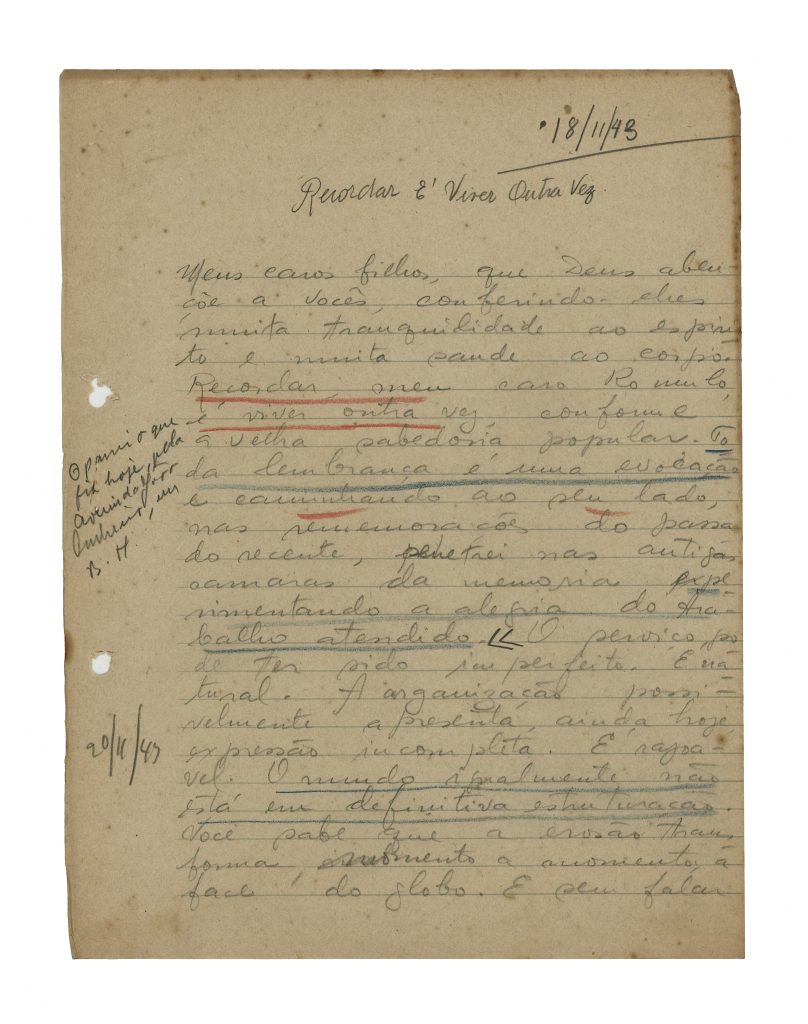 18/11/43
Recordar É Viver Outra Vez.
Meus caros filhos, que Deus aben-
çôe a vocês, conferindo-lhes
muita tranquilidade ao espiri-
to e muita saude ao corpo.
Recordar, meu caro Romulo,
é viver outra vez, conforme
a velha sabedoria popular. To
da lembrança é uma evocação
e caminhando ao seu lado,
nas rememorações do passa
do recente, penetrei nas antigas
camaras da memoria expe
rimentando a alegria do tra-
balho atendido. O serviço po
de ter sido imperfeito. É na
tural. A organização possi-
velmente apresenta, ainda hoje,
expressão incompleta. É razoa-
vel. O mundo igualmente não
está em definitiva estruturação.
Você sabe que a erosão trans
forma momento a momento a
face do globo. E sem falar
O passeio que
fiz hoje, pela
avenida
B. H.
20/11/43